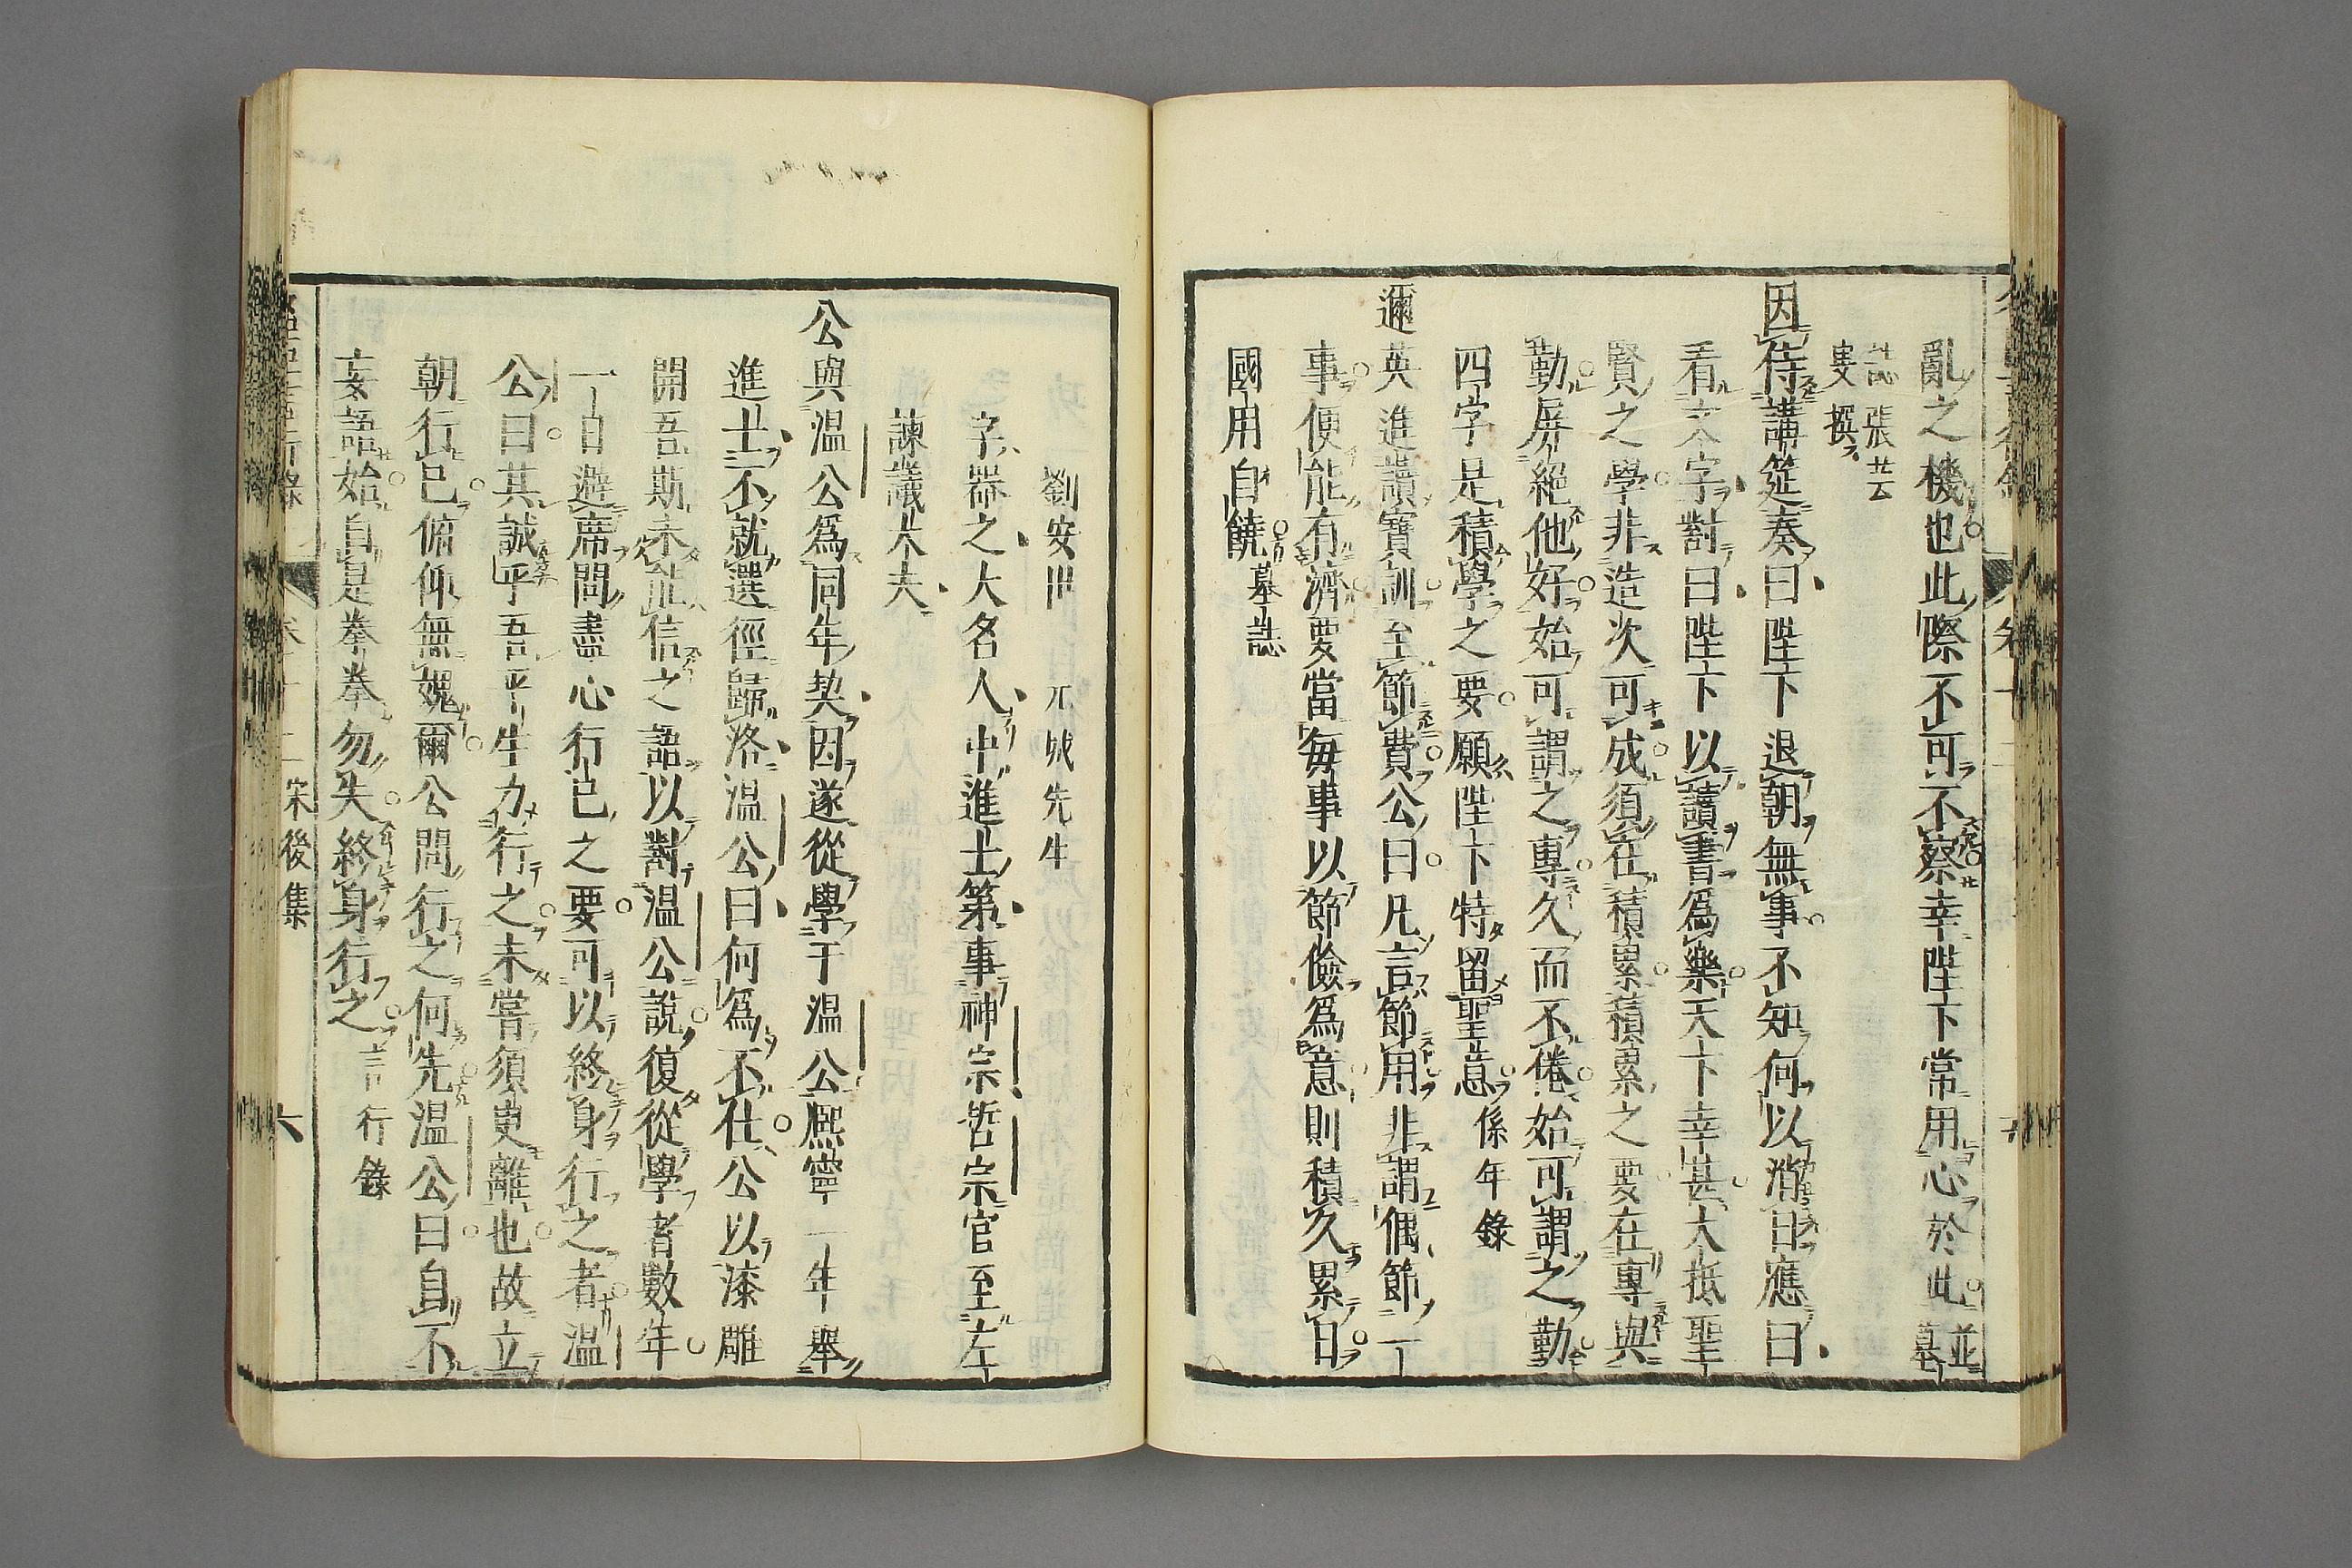 亂之機也此際不可不察幸陛下常用心於此並墓
誌張芸
叟撰
因侍講筵奏曰陛下退朝無事不知何以消日應曰
看文字對曰陛下以讀書爲樂天下幸甚大抵聖
賢之學非造次可成須在積累積累之要在專與
勤屏絕他好始可謂之專久而不倦始可謂之勤
四字是積學之要願陛下特留聖意係年錄
邇英進讀寶訓至節費公曰凡言節用非謂偶節一
事便能有濟要當每事以節儉爲意則積久累日
國用自饒墓誌
劉安世 元城先生
字器之大名人中進士第事神宗哲宗官至左
諫議大夫
公與温公爲同年契因遂從學于温公熈寧一年舉
進士不就選徑歸洛温公曰何爲不仕公以漆雕
開吾斯未能信之語以對温公說復從學者數年
一自避席問盡心行己之要可以終身行之者温
公曰其誠乎吾平生力行之未嘗須臾離也故立
朝行己俯仰無媿爾公問行之何先温公曰自不
妄語始自是拳拳勿失終身行之言行錄
宋後集
六